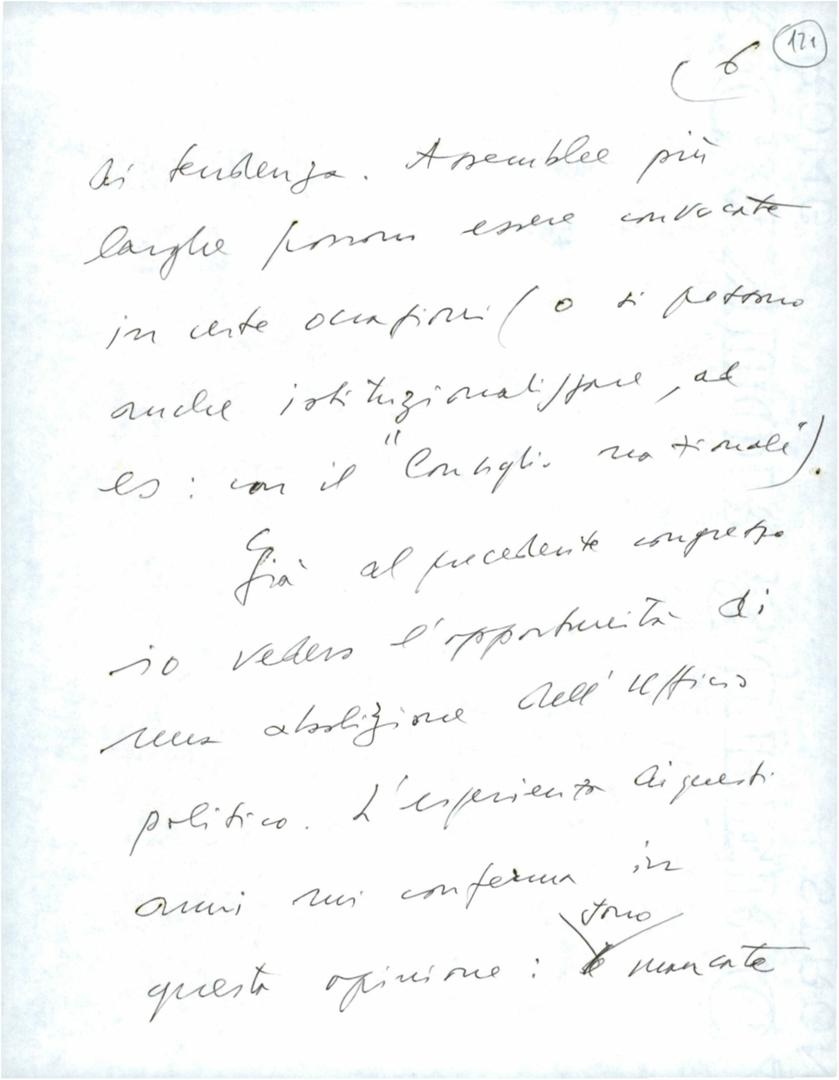 6 121
di tendenza. Assemblee più
larghe possono essere convocate
in certe occasioni (o si possono
anche istituzionalizzare, ad
es: con il "Consiglio nazionale").
Già al precedente congresso
io vedevo l'opportunità di
una abolizione dell'Ufficio
politico. L'esperienza di questi
anni mi conferma in
sono
questa opinione: è mancate